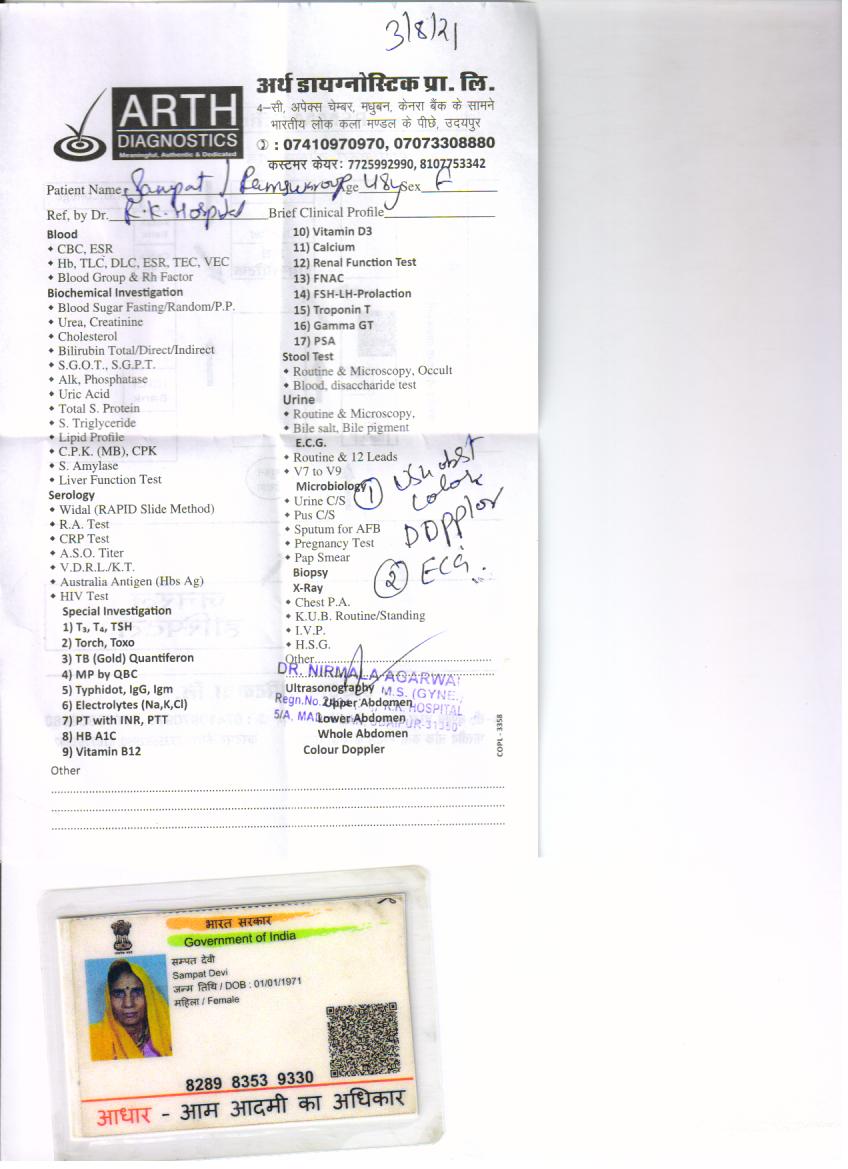 3/8/21
ARTH
DIAGNOSTICS
Meaningful, Authentic & Dedicated
अर्थ डायग्नोस्टिक प्रा. लि.
4–सी, अपेक्स चेम्बर, मधुबन, केनरा बैंक के सामने
भारतीय लोक कला मण्डल के पीछे, उदयपुर
: 07410970970, 07073308880
कस्टमर केयर: 7725992990, 8107753342
Patient Name Sampat / Ramswaroop Age 48y Sex F
Ref, by Dr. R.K. Hospital Brief Clinical Profile
Blood
• CBC, ESR
• Hb, TLC, DLC, ESR, TEC, VEC
• Blood Group & Rh Factor
Biochemical Investigation
• Blood Sugar Fasting/Random/P.P.
• Urea, Creatinine
• Cholesterol
• Bilirubin Total/Direct/Indirect
• S.G.O.T., S.G.P.T.
• Alk, Phosphatase
• Uric Acid
• Total S. Protein
• S. Triglyceride
• Lipid Profile
• C.P.K. (MB), CPK
• S. Amylase
• Liver Function Test
Serology
• Widal (RAPID Slide Method)
• R.A. Test
• CRP Test
• A.S.O. Titer
• V.D.R.L./K.T.
• Australia Antigen (Hbs Ag)
• HIV Test
Special Investigation
1) T₃, T₄, TSH
2) Torch, Toxo
3) TB (Gold) Quantiferon
4) MP by QBC
5) Typhidot, IgG, Igm
6) Electrolytes (Na,K,Cl)
7) PT with INR, PTT
8) HB A1C
9) Vitamin B12
10) Vitamin D3
11) Calcium
12) Renal Function Test
13) FNAC
14) FSH-LH-Prolaction
15) Troponin T
16) Gamma GT
17) PSA
Stool Test
• Routine & Microscopy, Occult
• Blood, disaccharide test
Urine
• Routine & Microscopy,
• Bile salt, Bile pigment
E.C.G.
• Routine & 12 Leads
• V7 to V9
Microbiology
• Urine C/S
• Pus C/S
• Sputum for AFB
• Pregnancy Test
• Pap Smear
Biopsy
X-Ray
• Chest P.A.
• K.U.B. Routine/Standing
• I.V.P.
• H.S.G.
Other
Ultrasonography
Upper Abdomen
Lower Abdomen
Whole Abdomen
Colour Doppler
① color
Doppler
② ECG.
DR. NIRMALA AGARWAL
M.S. (GYNE.
Regn.No. R.K. HOSPITAL
5/A, UDAIPUR-3130
COPL - 3358
Other
भारत सरकार
Government of India
सम्पत देवी
Sampat Devi
जन्म तिथि / DOB : 01/01/1971
महिला / Female
8289 8353 9330
आधार - आम आदमी का अधिकार